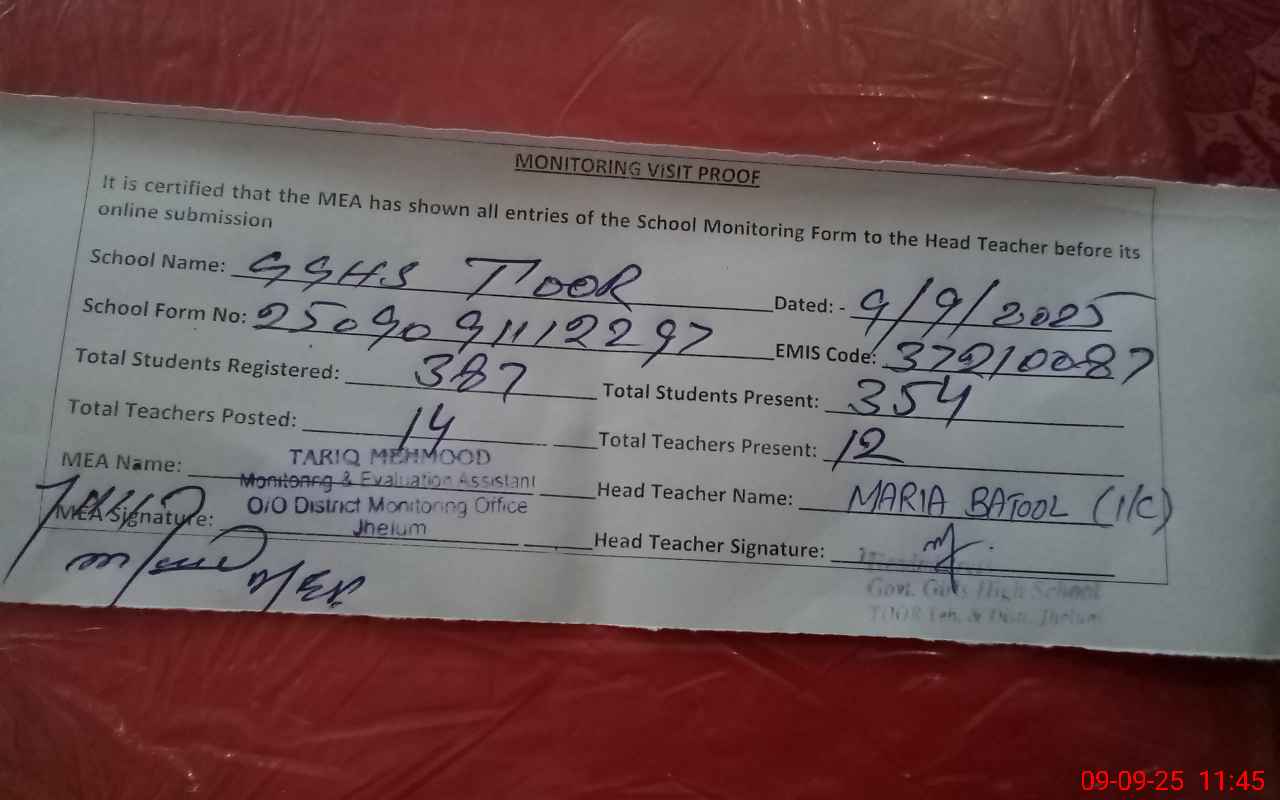 MONITORING VISIT PROOF
It is certified that the MEA has shown all entries of the School Monitoring Form to the Head Teacher before its
online submission
School Name: GGHS TOOR Dated: - 9/9/2025
School Form No: 2509091112297 EMIS Code: 37210087
Total Students Registered: 387 Total Students Present: 354
Total Teachers Posted: 14 Total Teachers Present: 12
MEA Name: TARIQ MEHMOOD
Monitoring & Evaluation Assistant
O/O District Monitoring Office
Jhelum
Head Teacher Name: MARIA BATOOL (I/C)
MEA Signature: Head Teacher Signature:
MEA
Govt. Girls High School
TOOR Teh. & Distt. Jhelum
09-09-25 11:45